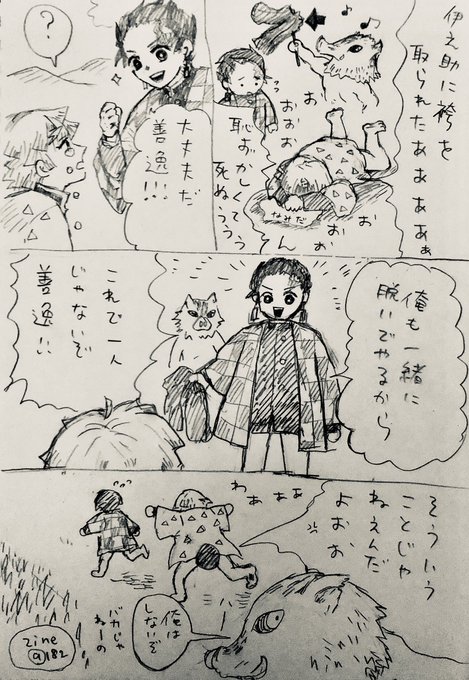 伊之助に袴を
取られたああああぁ
お
おぉぉ
お
おぉ
ん
なみだ
恥ずかしくて
死ぬぅぅぅ
大丈夫だ
善逸!!!
?
俺も一緒に
脱いでやるから
これで一人
じゃないぞ
善逸!!
そういう
ことじゃ
ねえんだ
よおぉ
わあぁぁ
俺は
しないぞ
バカじゃ
ねーの
zine
@182